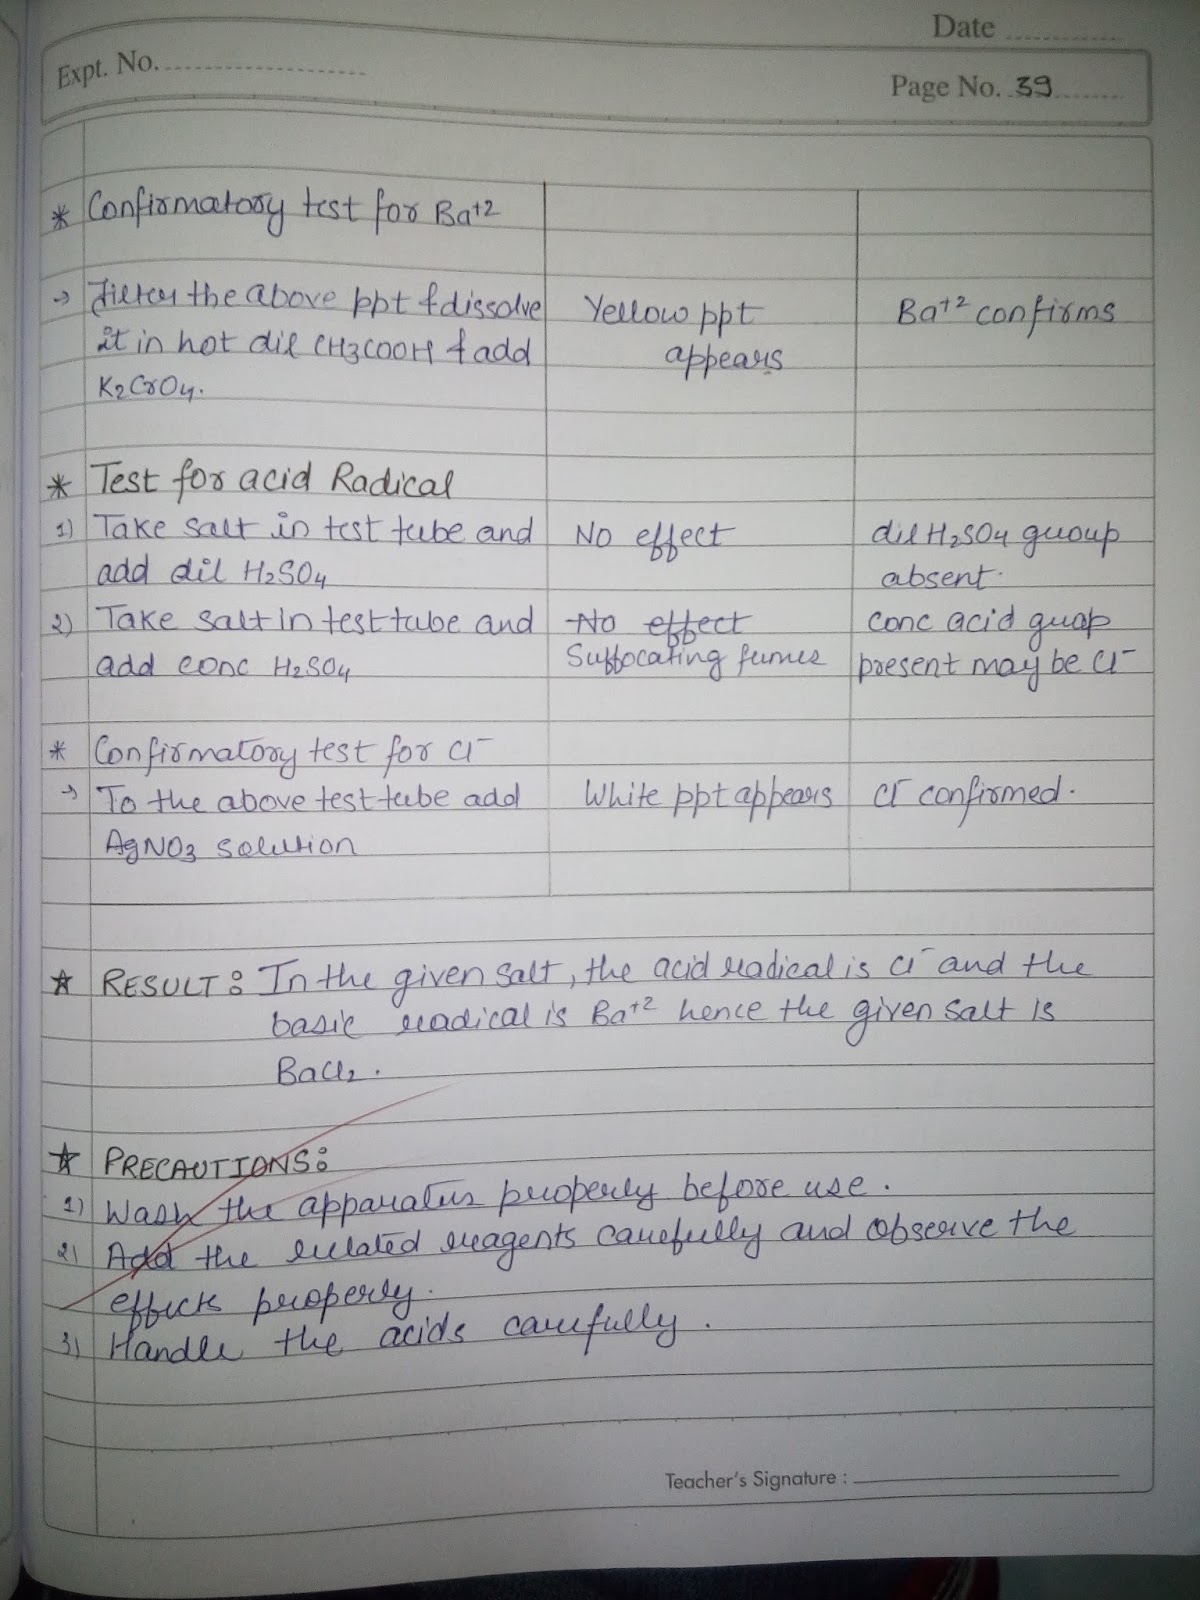 Date
Expt. No.
Page No. 39
* Confirmatory test for Ba+2
→ Filter the above ppt & dissolve Yellow ppt Ba+2 confirms
it in hot dil CH3COOH & add appears
K2CrO4.
* Test for acid Radical
1) Take salt in test tube and No effect dil H2SO4 group
add dil H2SO4 absent.
2) Take salt in test tube and No effect conc acid group
add conc H2SO4 Suffocating fumes present may be Cl-
* Confirmatory test for Cl-
→ To the above test tube add White ppt appears Cl- confirmed.
AgNO3 solution
☆ RESULT: In the given salt, the acid radical is Cl- and the
basic radical is Ba+2 hence the given salt is
BaCl2.
☆ PRECAUTIONS:
1) Wash the apparatus properly before use.
2) Add the related reagents carefully and observe the
effects properly.
3) Handle the acids carefully.
Teacher's Signature :